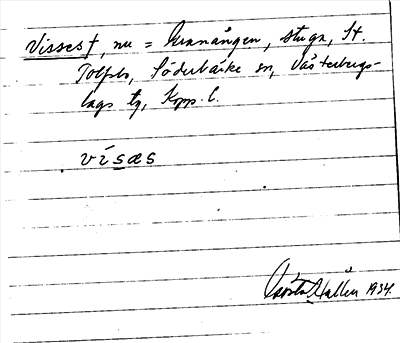 Visses†, nu = Granängen, stuga, St.
Tolfsb, Söderbärke sn, Västerbergs-
lags tg, Kopp. l.
vísæs
Gösta Hallén 1934.